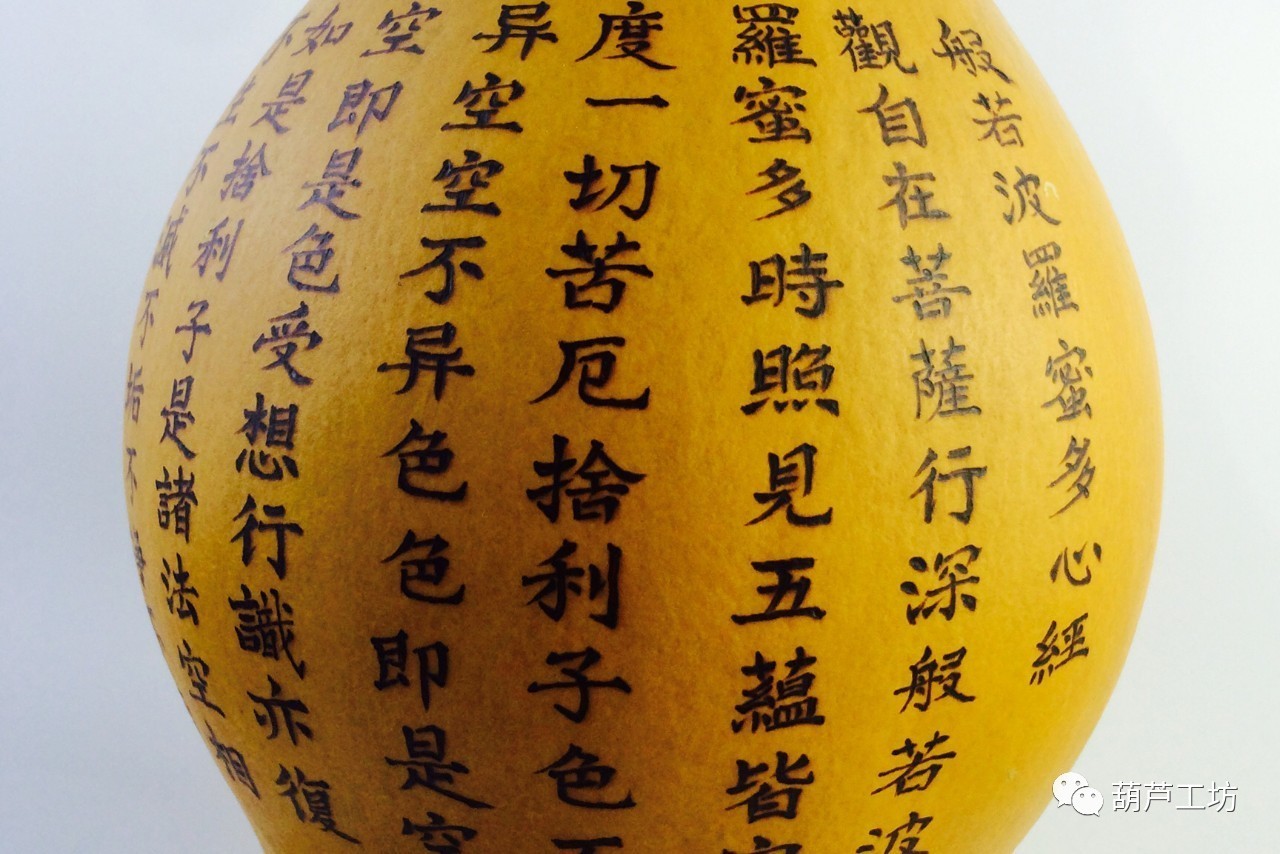 般若波羅蜜多心經
觀自在菩薩行深般若波
羅蜜多時照見五蘊皆空
度一切苦厄捨利子色不
异空空不异色色即是空
空即是色受想行識亦復
如是捨利子是諸法空相
不生不減不垢不淨
葫芦工坊